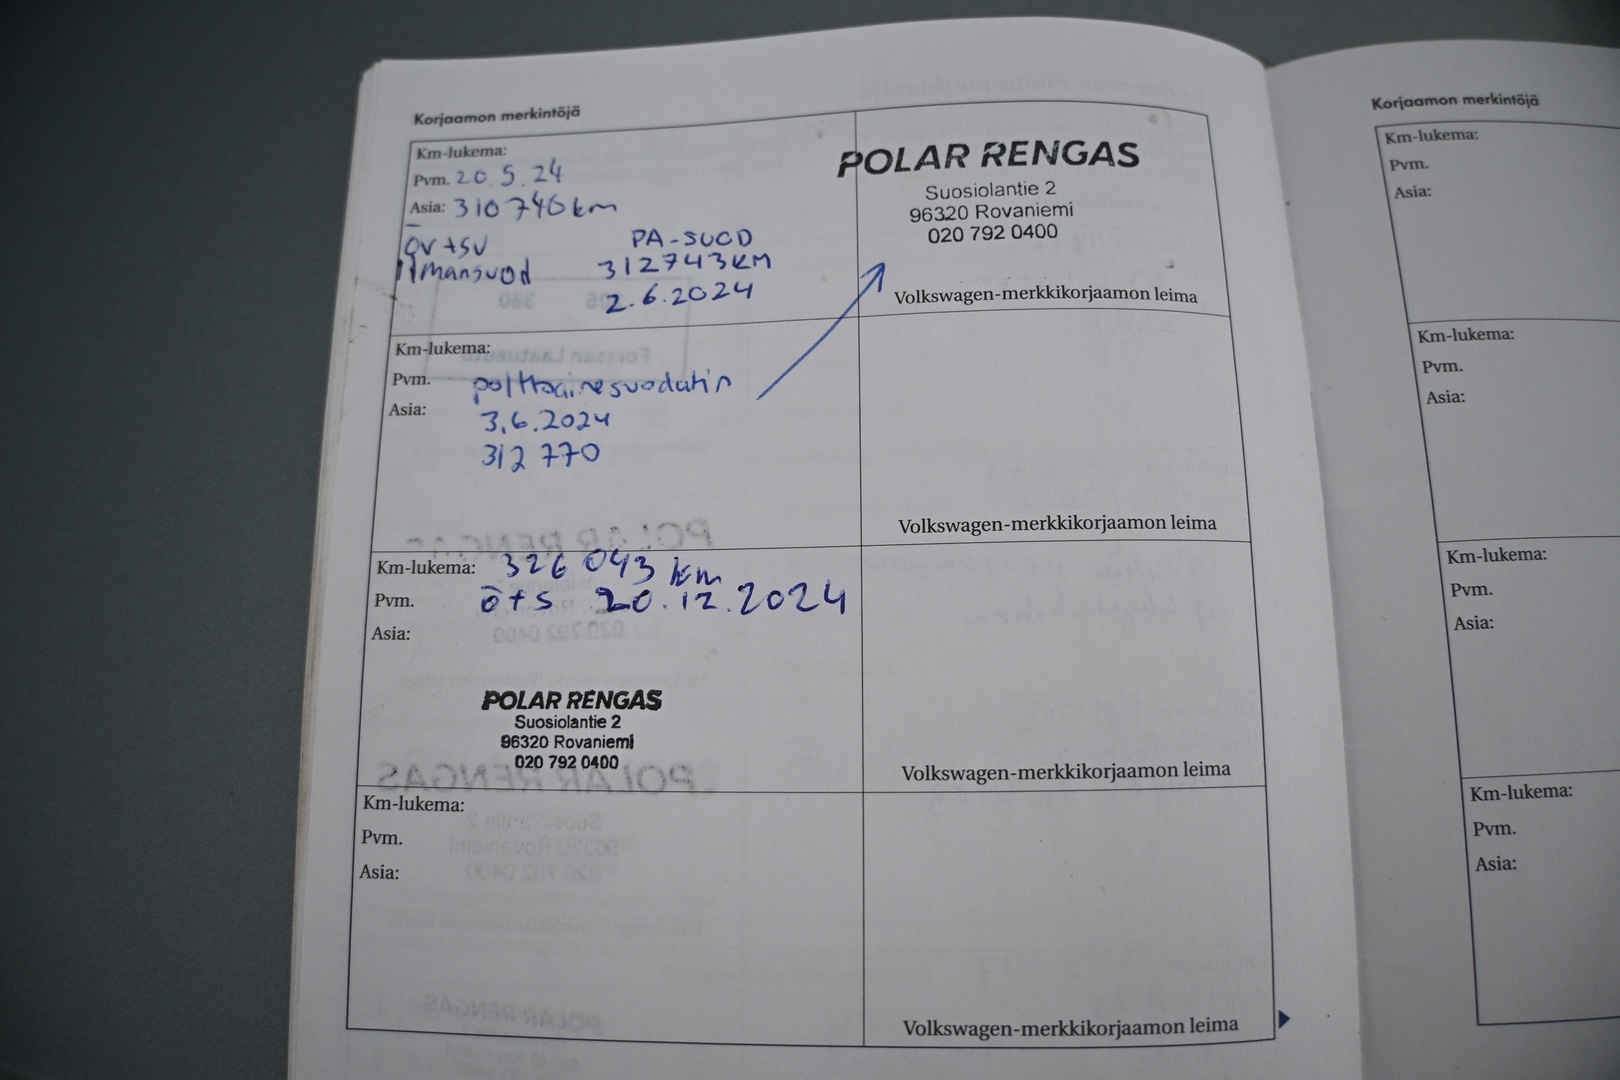 Korjaamon merkintöjä
Km-lukema:
Pvm. 20.5.24
Asia: 310746km
öv+sv
ilmansuod
PA-SUOD
312743KM
2.6.2024
POLAR RENGAS
Suosiolantie 2
96320 Rovaniemi
020 792 0400
Volkswagen-merkkikorjaamon leima
Km-lukema:
Pvm. polttoainesuodatin
Asia: 3.6.2024
312 770
Volkswagen-merkkikorjaamon leima
Km-lukema: 326 043 km
Pvm. ö+s 20.12.2024
Asia:
POLAR RENGAS
Suosiolantie 2
96320 Rovaniemi
020 792 0400
Volkswagen-merkkikorjaamon leima
Km-lukema:
Pvm.
Asia:
Volkswagen-merkkikorjaamon leima
Korjaamon merkintöjä
Km-lukema:
Pvm.
Asia:
Km-lukema:
Pvm.
Asia:
Km-lukema:
Pvm.
Asia:
Km-lukema:
Pvm.
Asia: